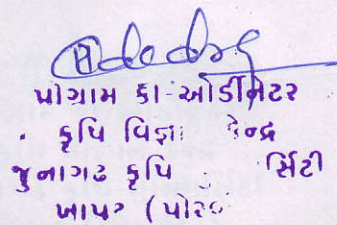 પ્રોગ્રામ કો-ઓર્ડીનેટર
કૃષિ વિજ્ઞા કેન્દ્ર
જુનાગઢ કૃષિ ર્સિટી
ખાપટ (પોર